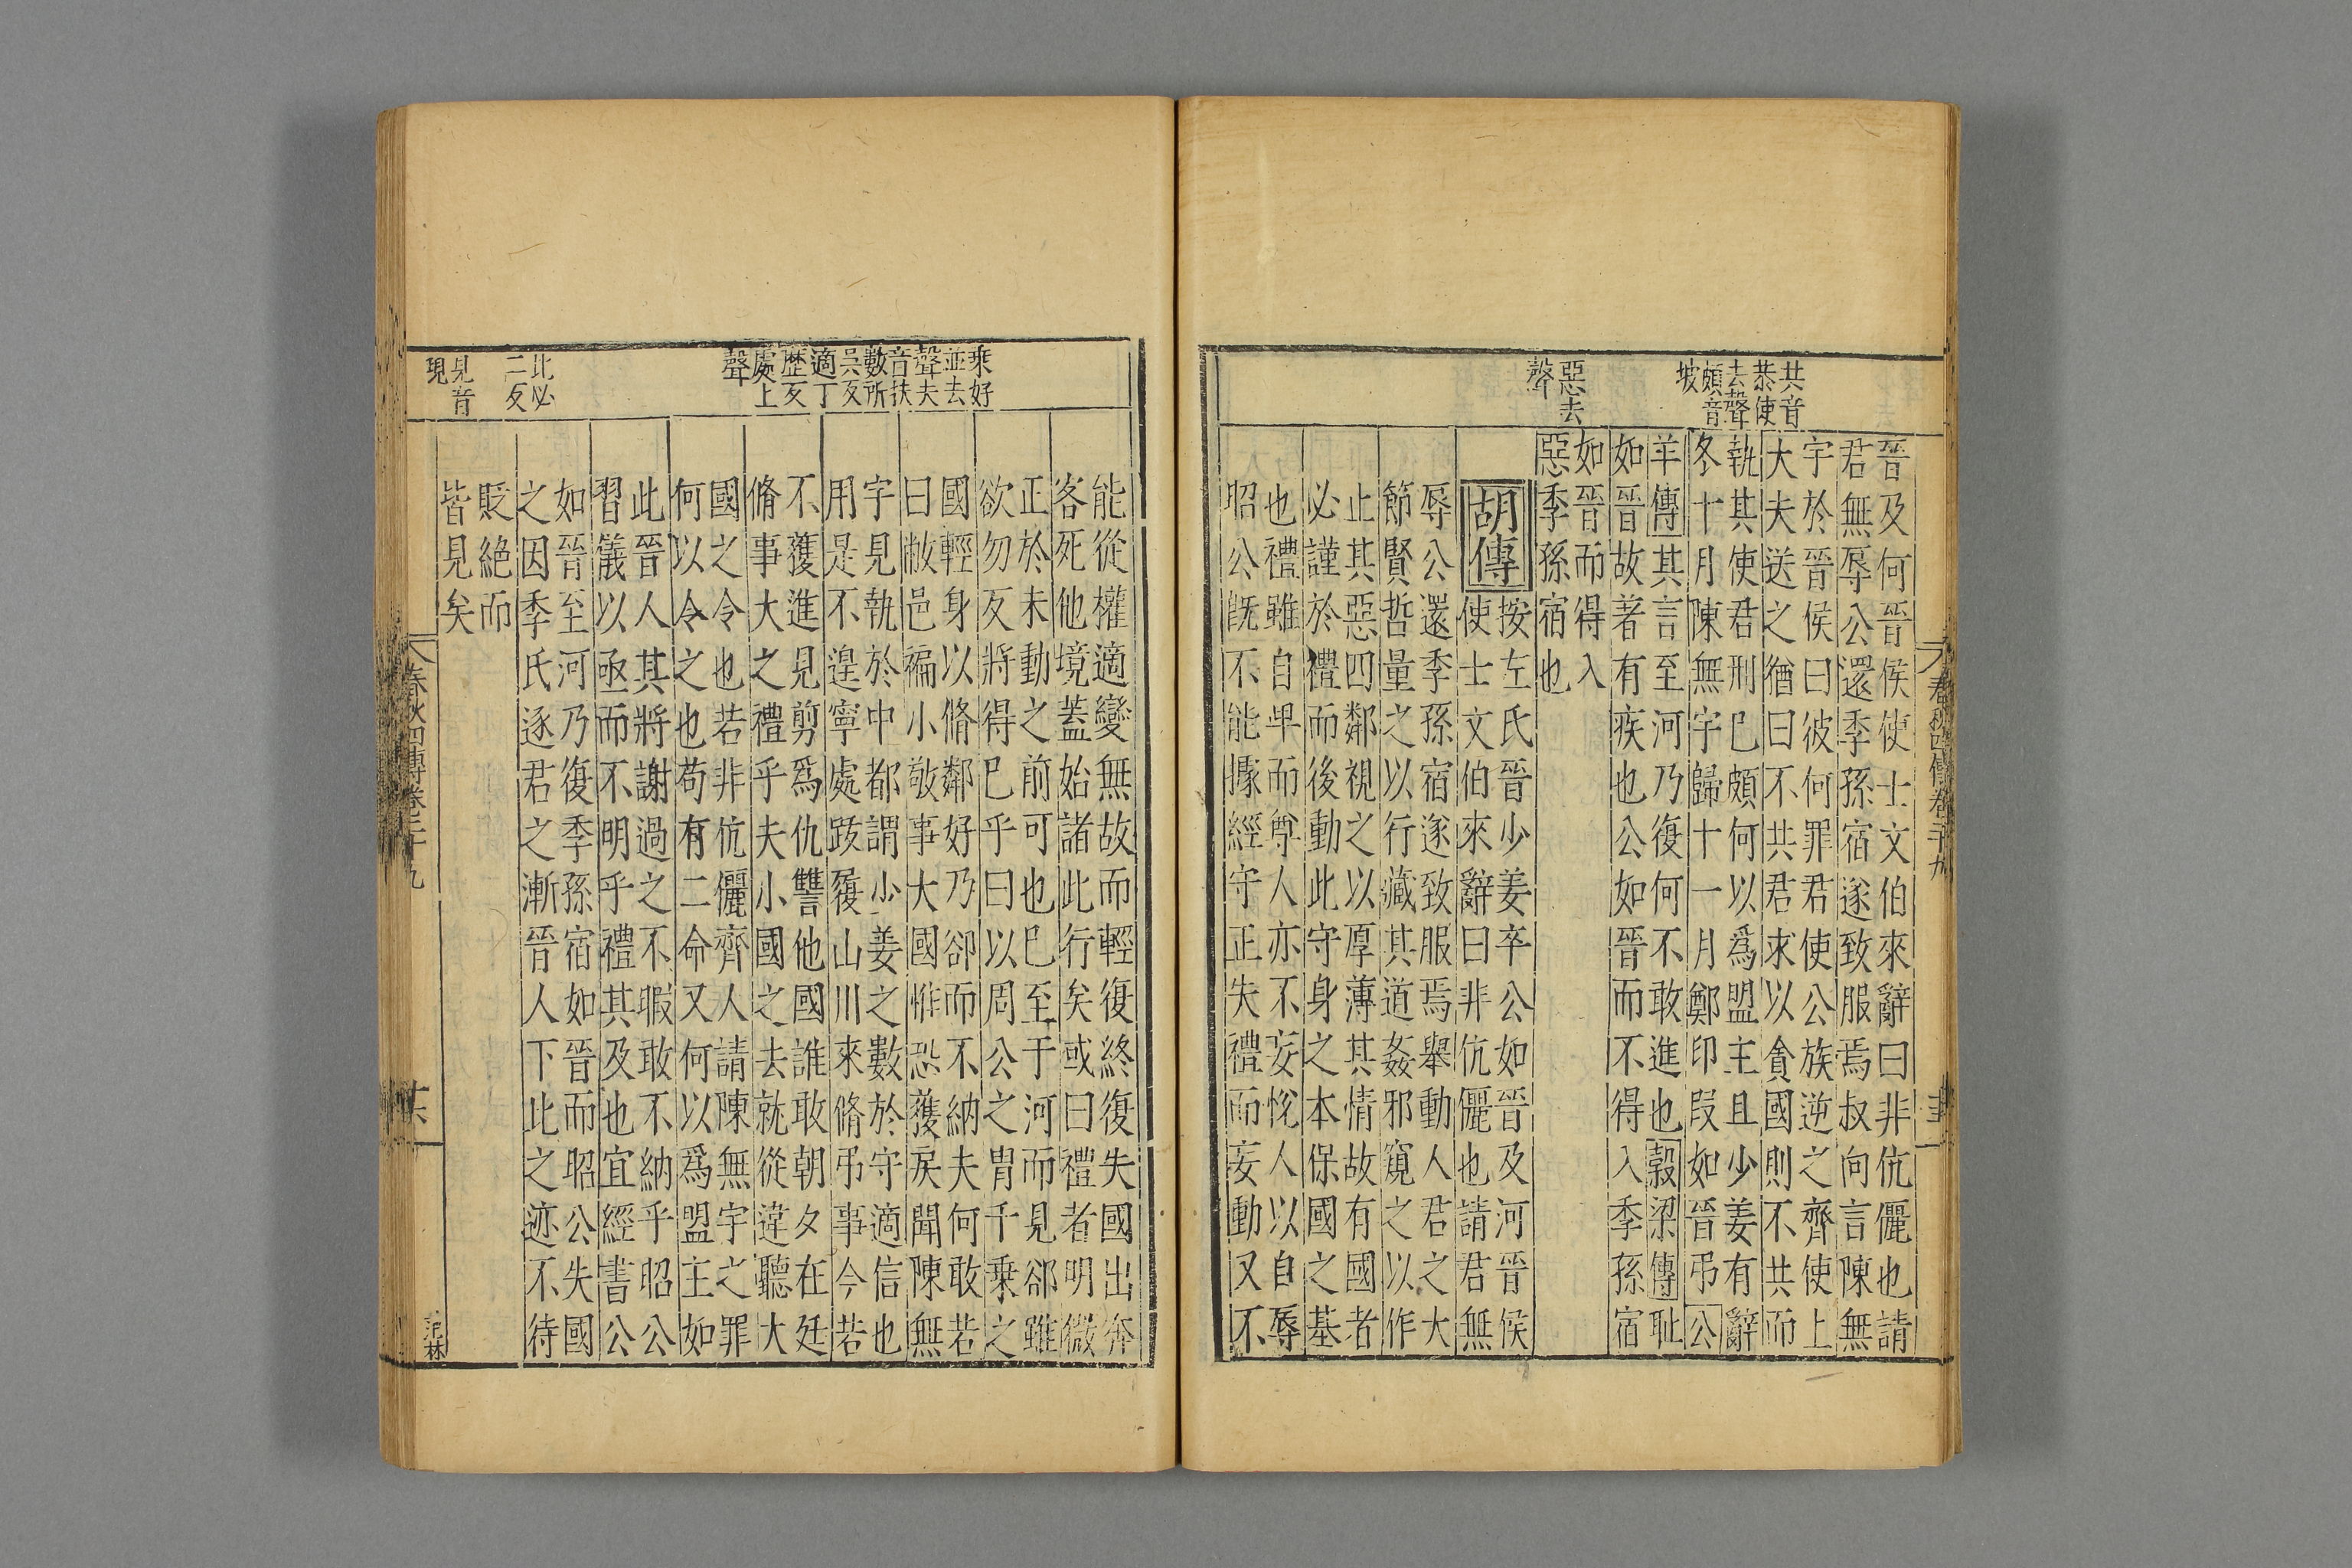 共音
恭使
去聲
頗音
坡
惡去
聲
晉及何晉侯使士文伯來辭曰非伉儷也請
君無辱公還季孫宿遂致服焉叔向言陳無
宇於晉侯曰彼何罪君使公族逆之齊使上
大夫送之猶曰不共君求以貪國則不共而
執其使君刑已頗何以爲盟主且少姜有辭
冬十月陳無宇歸十一月鄭印段如晉弔公
羊傳其言至河乃復何不敢進也穀梁傳耻
如晉故著有疾也公如晉而不得入季孫宿
如晉而得入
惡季孫宿也
胡傳
按左氏晉少姜卒公如晉及河晉侯
使士文伯來辭曰非伉儷也請君無
辱公還季孫宿遂致服焉舉動人君之大
節賢哲量之以行藏其道姦邪窺之以作
止其惡四鄰視之以厚薄其情故有國者
必謹於禮而後動此守身之本保國之基
也禮雖自卑而尊人亦不妄悅人以自辱
昭公既不能據經守正失禮而妄動又不
春秋四傳卷二十九
乘好
並去
聲夫
音扶
數所
吳反
適丁
歷反
處上
聲
比必
二反
見音
現
能從權適變無故而輕復終復失國出奔
客死他境蓋始諸此行矣或曰禮者明微
正於未動之前可也已至于河而見郤雖
欲勿反將得已乎曰以周公之胄千乘之
國輕身以脩鄰好乃卻而不納夫何敢若
曰敝邑褊小敬事大國惟恐獲戾聞陳無
宇見執於中都謂少姜之數於守適信也
用是不遑寧處跋履山川來脩弔事今若
不獲進見剪爲仇讐他國誰敢朝夕在廷
脩事大之禮乎夫小國之去就從違聽大
國之令也若非伉儷齊人請陳無宇之罪
何以令之也苟有二命又何以爲盟主如
此晉人其將謝過之不暇敢不納乎昭公
習儀以亟而不明乎禮其及也宜經書公
如晉至河乃復季孫宿如晉而昭公失國
之因季氏逐君之漸晉人下此之迹不待
貶絕而
皆見矣
春秋四傳卷二十九